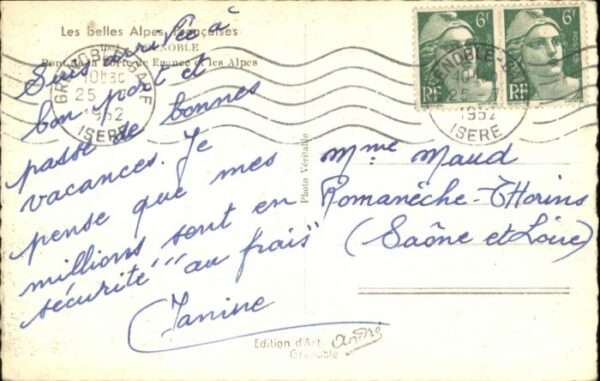 Les belles Alpes Françaises
GRENOBLE
Pont de la Porte de France et les Alpes
Suis arrivée à
bon port et
passe de bonnes
vacances. Je
pense que mes
millions sont en
sécurité "au frais"
Janine
Photo Véritable
Edition d'Art
Grenoble
6F
RF
6F
RF
GRENOBLE-GARE
10H30
25
1952
ISERE
GRENOBLE
25
1952
ISERE
Mme Maud
Romanèche-Thorins
(Saône et Loire)